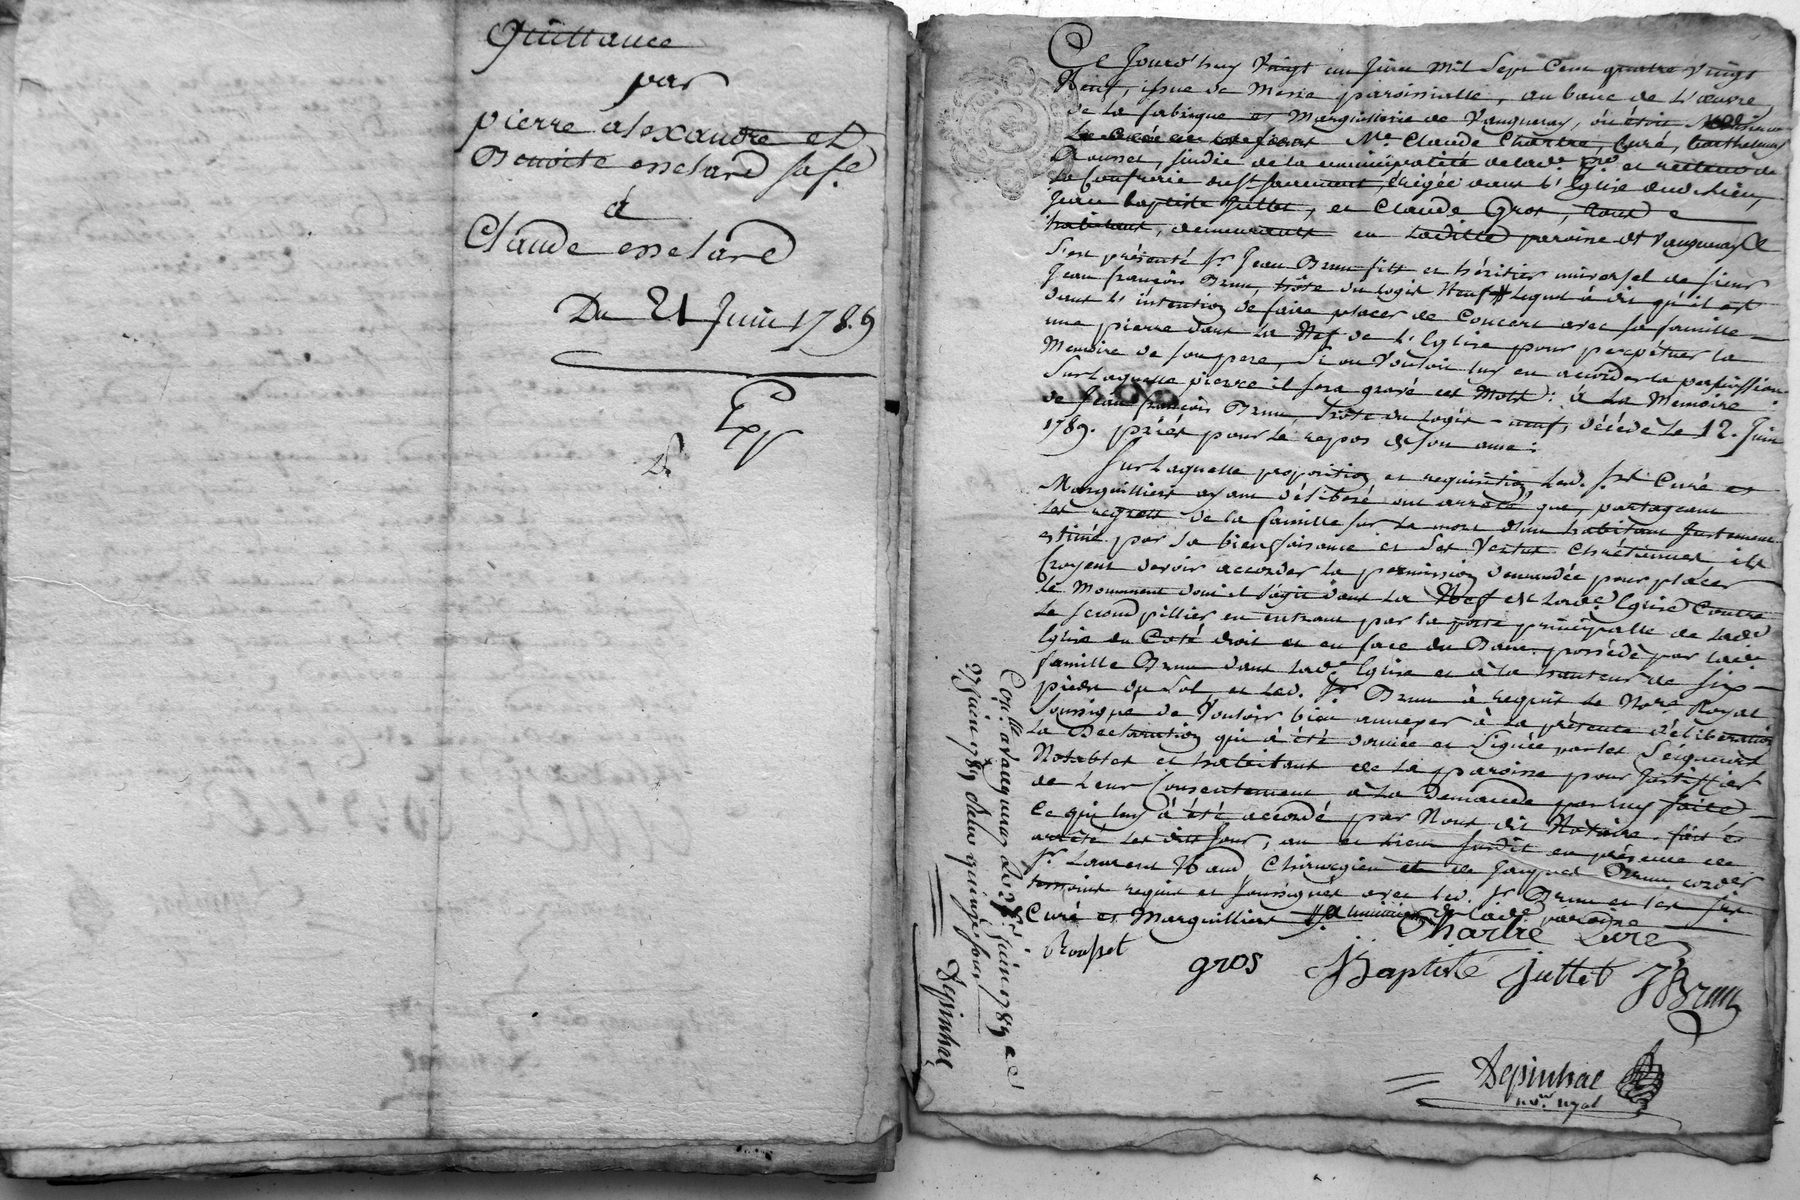 Quittance
par
pierre alexandre et
Benoite esselard sa fe
à
Claude esselard
Du 21 Juin 1789
Exp
Ce Jourd'huy Vingt un Juin Mil Sept Cent quatre Vingt
Neuf, issue de Messe paroissialle, au banc de L'œuvre
de la fabrique et Marguillerie de Vaugneray, ou étoit
Me. Claude Chartre, Curé, Barthelemy
Rousset, sindic de la municipalité de lad. psse. et
La Confrerie du St Sacrement, Erigée dans l'Eglise dud. lieu,
Jean baptiste Juttet, et Claude Gros, tous
habitants, demeurants en Laditte paroisse de Vaugneray
S'est présenté Sr. Jean Brun fils et héritier universel de sieur
Jean françois Brun, hôte du Logis Neuf Lequel à dit qu'il est
dans L'intention de faire placer de Concert avec sa famille
une pierre dans La Nef de L'Eglise pour perpétuer la
Memoire de son pere, Si on Vouloit luy en accorder la permission
Sur Laquelle pierre il sera gravé ces Mots: à La Memoire
de Jean françois Brun hôte du Logis neuf, décédé Le 12. Juin
1789. priés pour Le repos de son ame:
Sur Laquelle proposition et requisition Led. Srs. Curé et
Marguilliers ayant délibéré ont arrêté que, partageant
Les regrets de la famille sur La mort d'un habitant Justement
estimé par sa bienfaisance et Ses Vertus Chrétiennes, ils
Croyent devoir accorder la permission demandée pour placer
le Monument dont il s'agit dans La Nef de Lade. Eglise Contre
Le second pillier en entrant par la porte principalle de Lade.
Eglise du Coté droit et en face du Banc possédé par lade.
famille Brun dans Lade. Eglise et à la hauteur de six
pieds du Sol, et Led. Sr. Brun à requis Le Nore. Royal
soussigné de Vouloir bien annexer à La présente délibération
La Déclaration qui à été donnée et Signée par les Seigneurs
Notables et habitants de La paroisse pour Justiffier
de Leur Consentement à La demande par luy faite
Ce qui luy à été accordé par Nous dit Notaire. fait et
arrêté Les dits Jour, an et Lieu susdit en présence de
Sr. Laurent Chirurgien et de Jacques Brun cordier
temoins requis et soussignés avec led. Sr Brun et les Srs.
Curé et Marguilliers de lade. paroisse
Chartre Curé
Rousset
gros
JBaptiste Juttet
JBrun
Depinhac
nore. royal
Conlle. à Vaugneray le 27e. juin 1789
27 Juin 1789 Reçu quinze sous
Depinhac